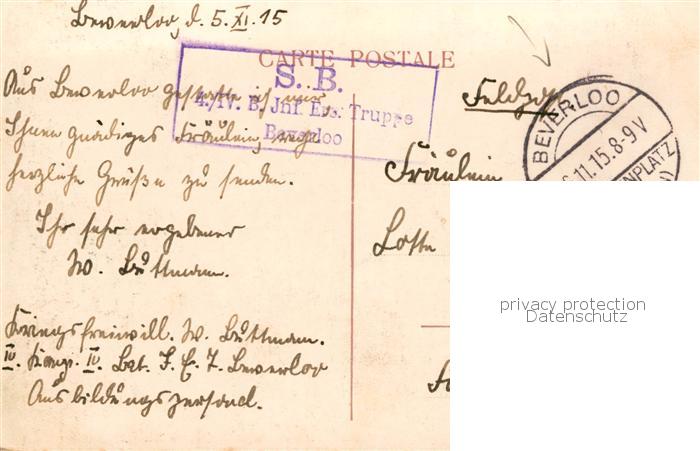 Beverloo, d. 5. XI. 15
CARTE POSTALE
S. B.
4./IV. B. Inf. Ers. Truppe
Beverloo
Aus Beverloo gestatte ich mir,
Ihnen gnädiges Fräulein, recht
herzliche Grüße zu senden.
Ihr sehr ergebener
W. Buttmann.
Kriegsfreiwill. W. Buttmann.
IV. Komp. IV. Bat. I. E. T. Beverloo
Ausbildungspersonal.
Feldpost
BEVERLOO
6.11.15.8-9V
Fräulein
Lotte
privacy protection
Datenschutz